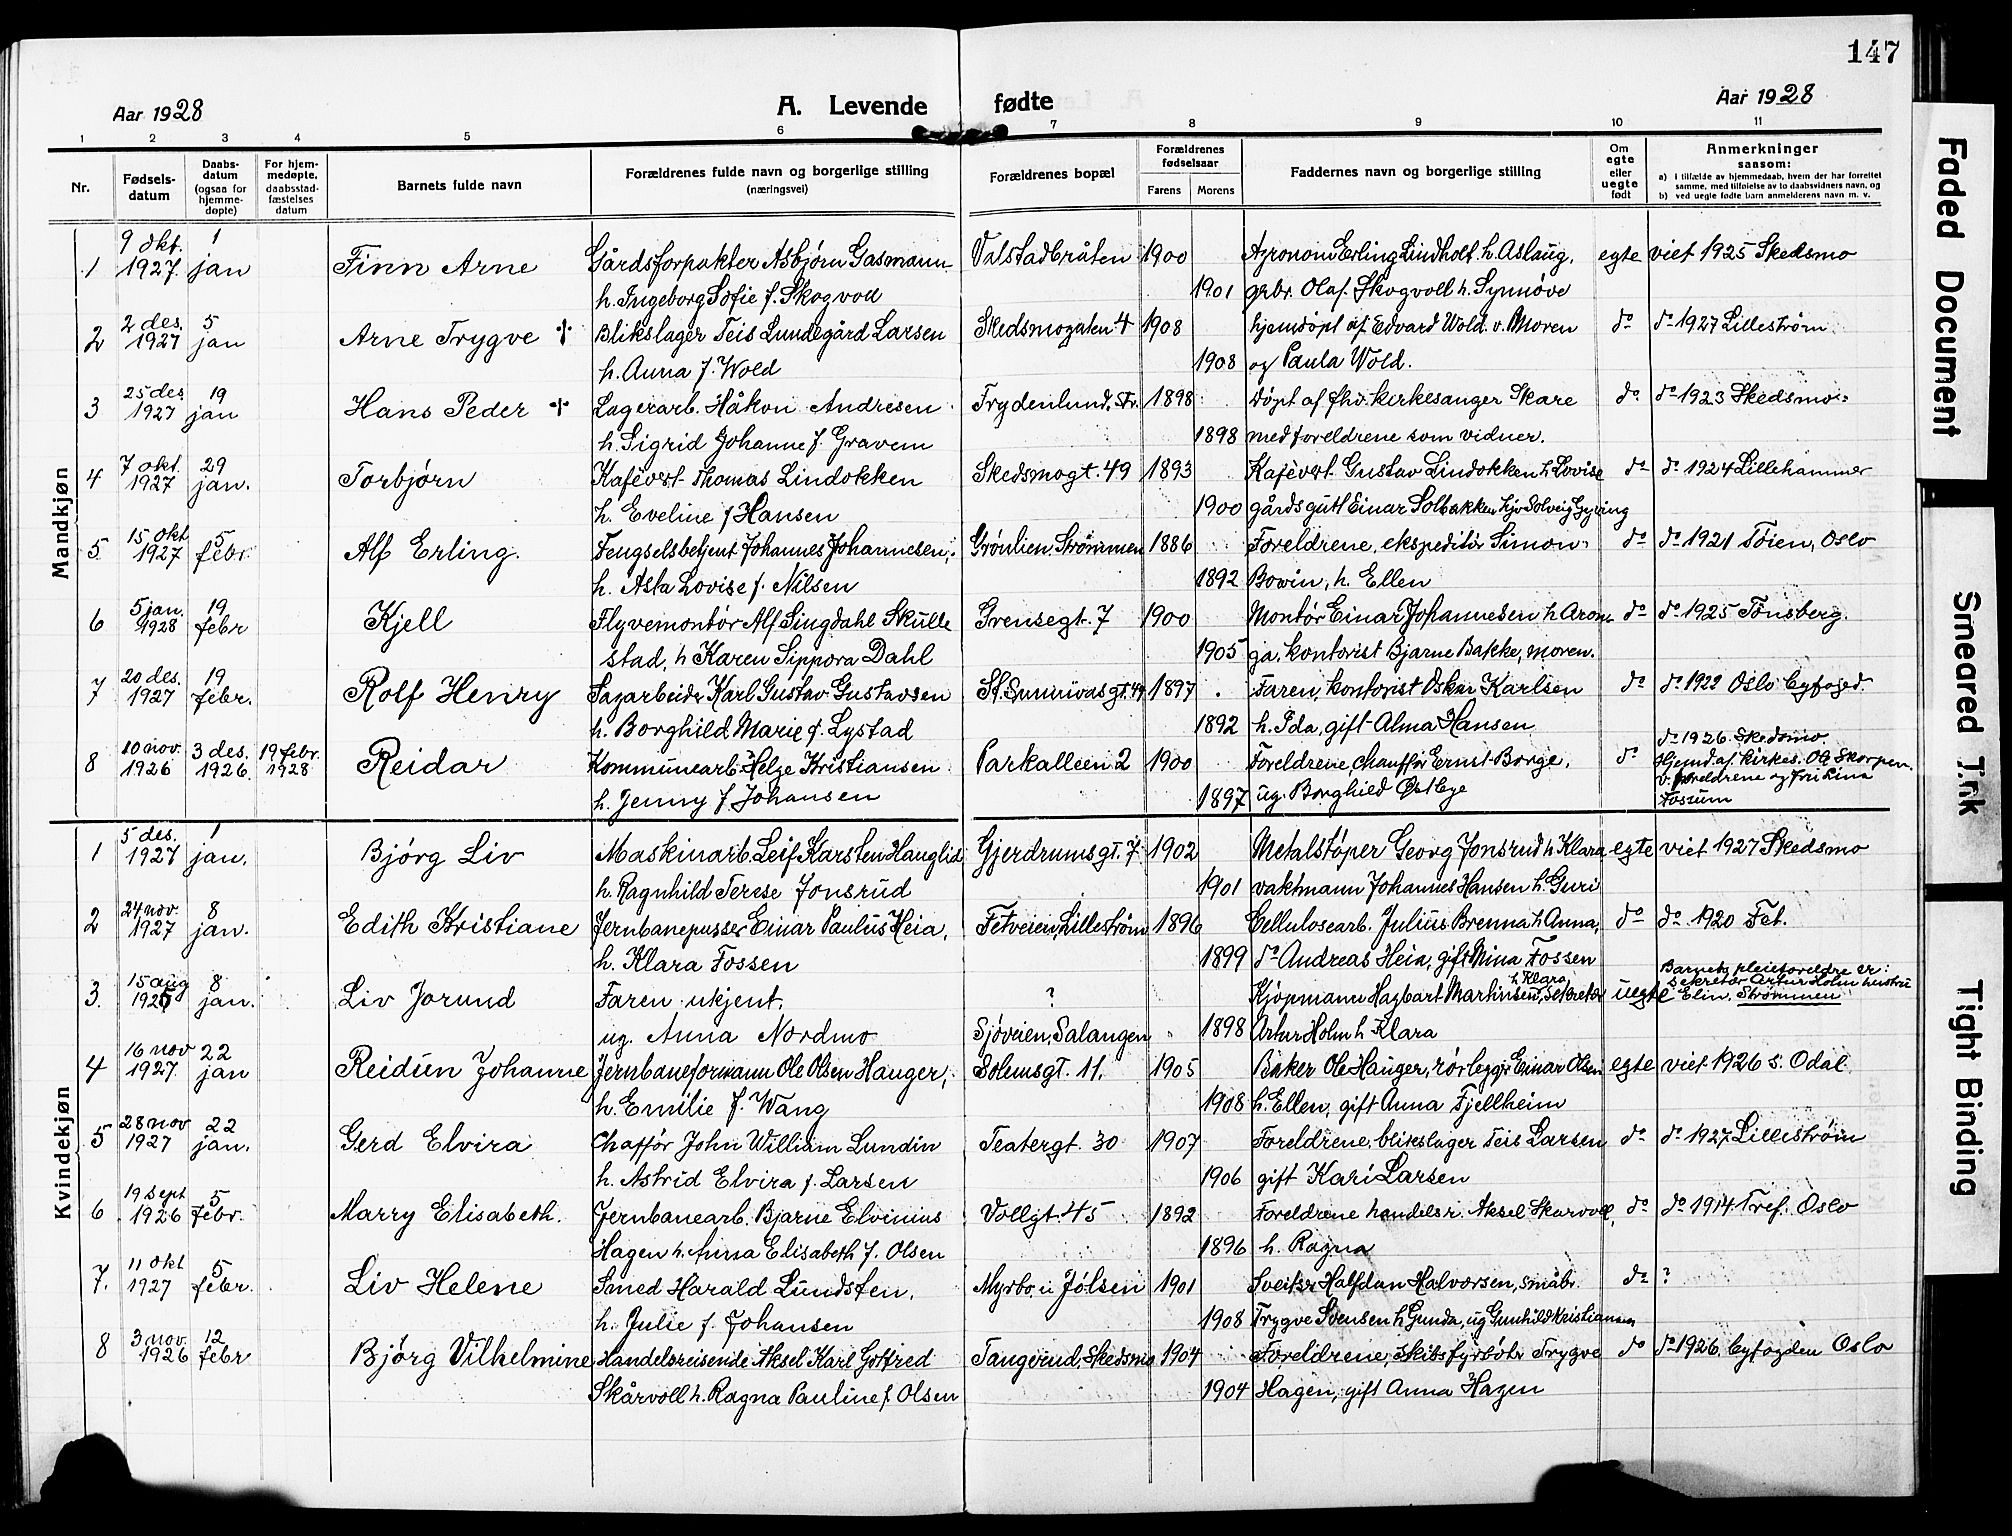 147
Aar 1928 A. Levende fødte Aar 1928
1 2 3 4 5 6 7 8 9 10 11
Nr. Fødsels-datum Daabs-datum (ogsaa for hjemme-døpte) For hjem-medøpte, daabsstad-fæstelses datum Barnets fulde navn Forældrenes fulde navn og borgerlige stilling (næringsvei) Forældrenes bopæl Forældrenes fødselsaar Farens Morens Faddernes navn og borgerlige stilling Om egte eller uegte født Anmerkninger saasom: a) I tilfælde av hjemmedaab, hvem der har forrettet samme, med tilføielse av to daabsvidners navn, og b) ved uegte fødte barn anmelderens navn m. v.
Mandkjøn
9 okt. 1
1 1927. jan Finn Arne Gårdsforpakter Asbjørn Gasmann Valstadbråten 1900 Agronom Erling Lindholt h. Aslaug, egte viet 1925 Skedsmo
h. Ingeborg Sofie f. Skogvoll 1901 grbr. Olaf Skogvoll h. Synnøve
2 des. 5
2 1927 jan Arne Trygve † Blikslager Teis Lundegård Larsen Skedsmogaten 4 1908 hjemdøpt af Edvard Wold v. Moren do do 1927 Lillestrøm
h. Anna f. Wold 1908 og Paula Wold.
25 des 19
3 1927 jan Hans Peder † Lagerarb. Håkon Andresen Frydenlund, Str. 1898 døpt af fhv. kirkesanger Skare do do 1923 Skedsmo
h. Sigrid Johanne f. Gravem 1898 med foreldrene som vidner.
7 okt. 29
4 1927 jan. Torbjørn Kafévert Thomas Lindokken Skedsmogt. 49 1893 Kafévert Gustav Lindokken h. Lovise do do 1924 Lillehammer
h. Eveline f Hansen 1900 gårdsgutt Einar Solbakken hjv Solveig Gyving
15 okt 5
5 1927 febr. Alf Erling. Fengselsbetjent Johannes Johannesen, Grønlien, Strømmen 1886 Foreldrene, ekspeditør Simon do do 1921 Tøien, Oslo
h. Asta Lovise f. Nilsen 1892 Bowin, h. Ellen
5 jan. 19
6 1928 febr Kjell Flyvemontør Alf Singdahl Skulle Grensegt. 7 1900 Montør Einar Johannesen h Aron do do 1925 Tønsberg.
stad, h Karen Sippora Dahl 1905 ga, kontorist Bjarne Bakke, moren.
20 des. 19
7 1927 febr. Rolf Henry Sagarbeider Karl Gustav Gustavsen St. Sunnivas gt. 49 1897 Faren, kontorist Oskar Karlsen do do 1922 Oslo Byfoged.
h. Borghild Marie f. Lystad 1892 h. Ida, gift Alma Hansen
10 nov. 3 des. 19 febr. do 1926. Skedsmo
8 1926 1926. 1928 Reidar Kommunearb. Helge Kristiansen Parkalleen 2 1900 Foreldrene, chauffør Ernst Borge, do Hjemd. af kirkes. Ole Skorpen
h. Jenny f Johansen 1897 ug. Borghild Østbye v. foreldrene og fru Lina
Fossum
Kvindekjøn
5 des. 1
1 1927 jan. Bjørg Liv Maskinarb. Leif Karsten Hauglid Gjerdrumsgt. 7 1902 Metalstøper Georg Jonsrud h Klara egte viet 1927 Skedsmo
h. Ragnhild Terese Jonsrud 1901 vaktmann Johannes Hansen h. Guri
24 nov. 8
2 1927 jan. Edith Kristiane Jernbanepusser Einar Paulus Heia, Fetveien, Lillestrøm 1896 Cellulosearb. Julius Brenna h Anna, do do 1920 Fet.
h. Klara Fossen 1899 do Andreas Heia, gift Mina Fossen
15 aug 8 h Klara Barnets pleieforeldre er:
3. 1925 jan. Liv Jorund Faren ukjent. ? Kjøpmann Hagbart Martinsen, sekretær uegte sekretær Artur Holm hustru Elin, Strømmen
ug. Anna Nordmo Sjøveien, Salangen 1898 Artur Holm h Klara
16 nov 22
4 1927. jan Reidun Johanne Jernbaneformann Ole Olsen Hauger, Solemsgt. 11. 1905 Baker Ole Hauger, rørlegger Einar Olsen egte viet 1926 S. Odal.
h. Emilie f. Wang 1908 h. Ellen, gift Anna Fjellheim
28 nov 22
5 1927 jan. Gerd Elvira Chaffør John William Lundin Teatergt. 30 1907 Foreldrene, blikslager Teis Larsen do do 1927 Lillestrøm
h. Astrid Elvira f. Larsen 1906 gift Kari Larsen
19 sept 5
6 1926 febr. Marry Elisabeth. Jernbanearb. Bjarne Elvinius Vollgt. 45 1892 Foreldrene handelsr. Aksel Skarvoll, do do 1914 Tref. Oslo
Hagen h. Anna Elisabeth f. Olsen 1896 h. Ragna
11 okt 5
7. 1927 febr. Liv Helene Smed Harald Lundsten, Myrbo, u Jølsen 1901 Sveitser Halfdan Halvorsen, småbr. do ?
h. Julie f. Johansen 1908 Trygve Svensen h Gunda, ug Gunhild Kristiansen
3 nov. 12
8 1926 febr Bjørg Vilhelmine Handelsreisende Aksel Karl Gotfred Tangerud, Skedsmo 1904 Foreldrene, skibsfyrbøter Trygve do do 1926, byfogden Oslo
Skårvoll h. Ragna Pauline f. Olsen 1904 Hagen, gift Anna Hagen
Faded Document
Smeared Ink
Tight Binding